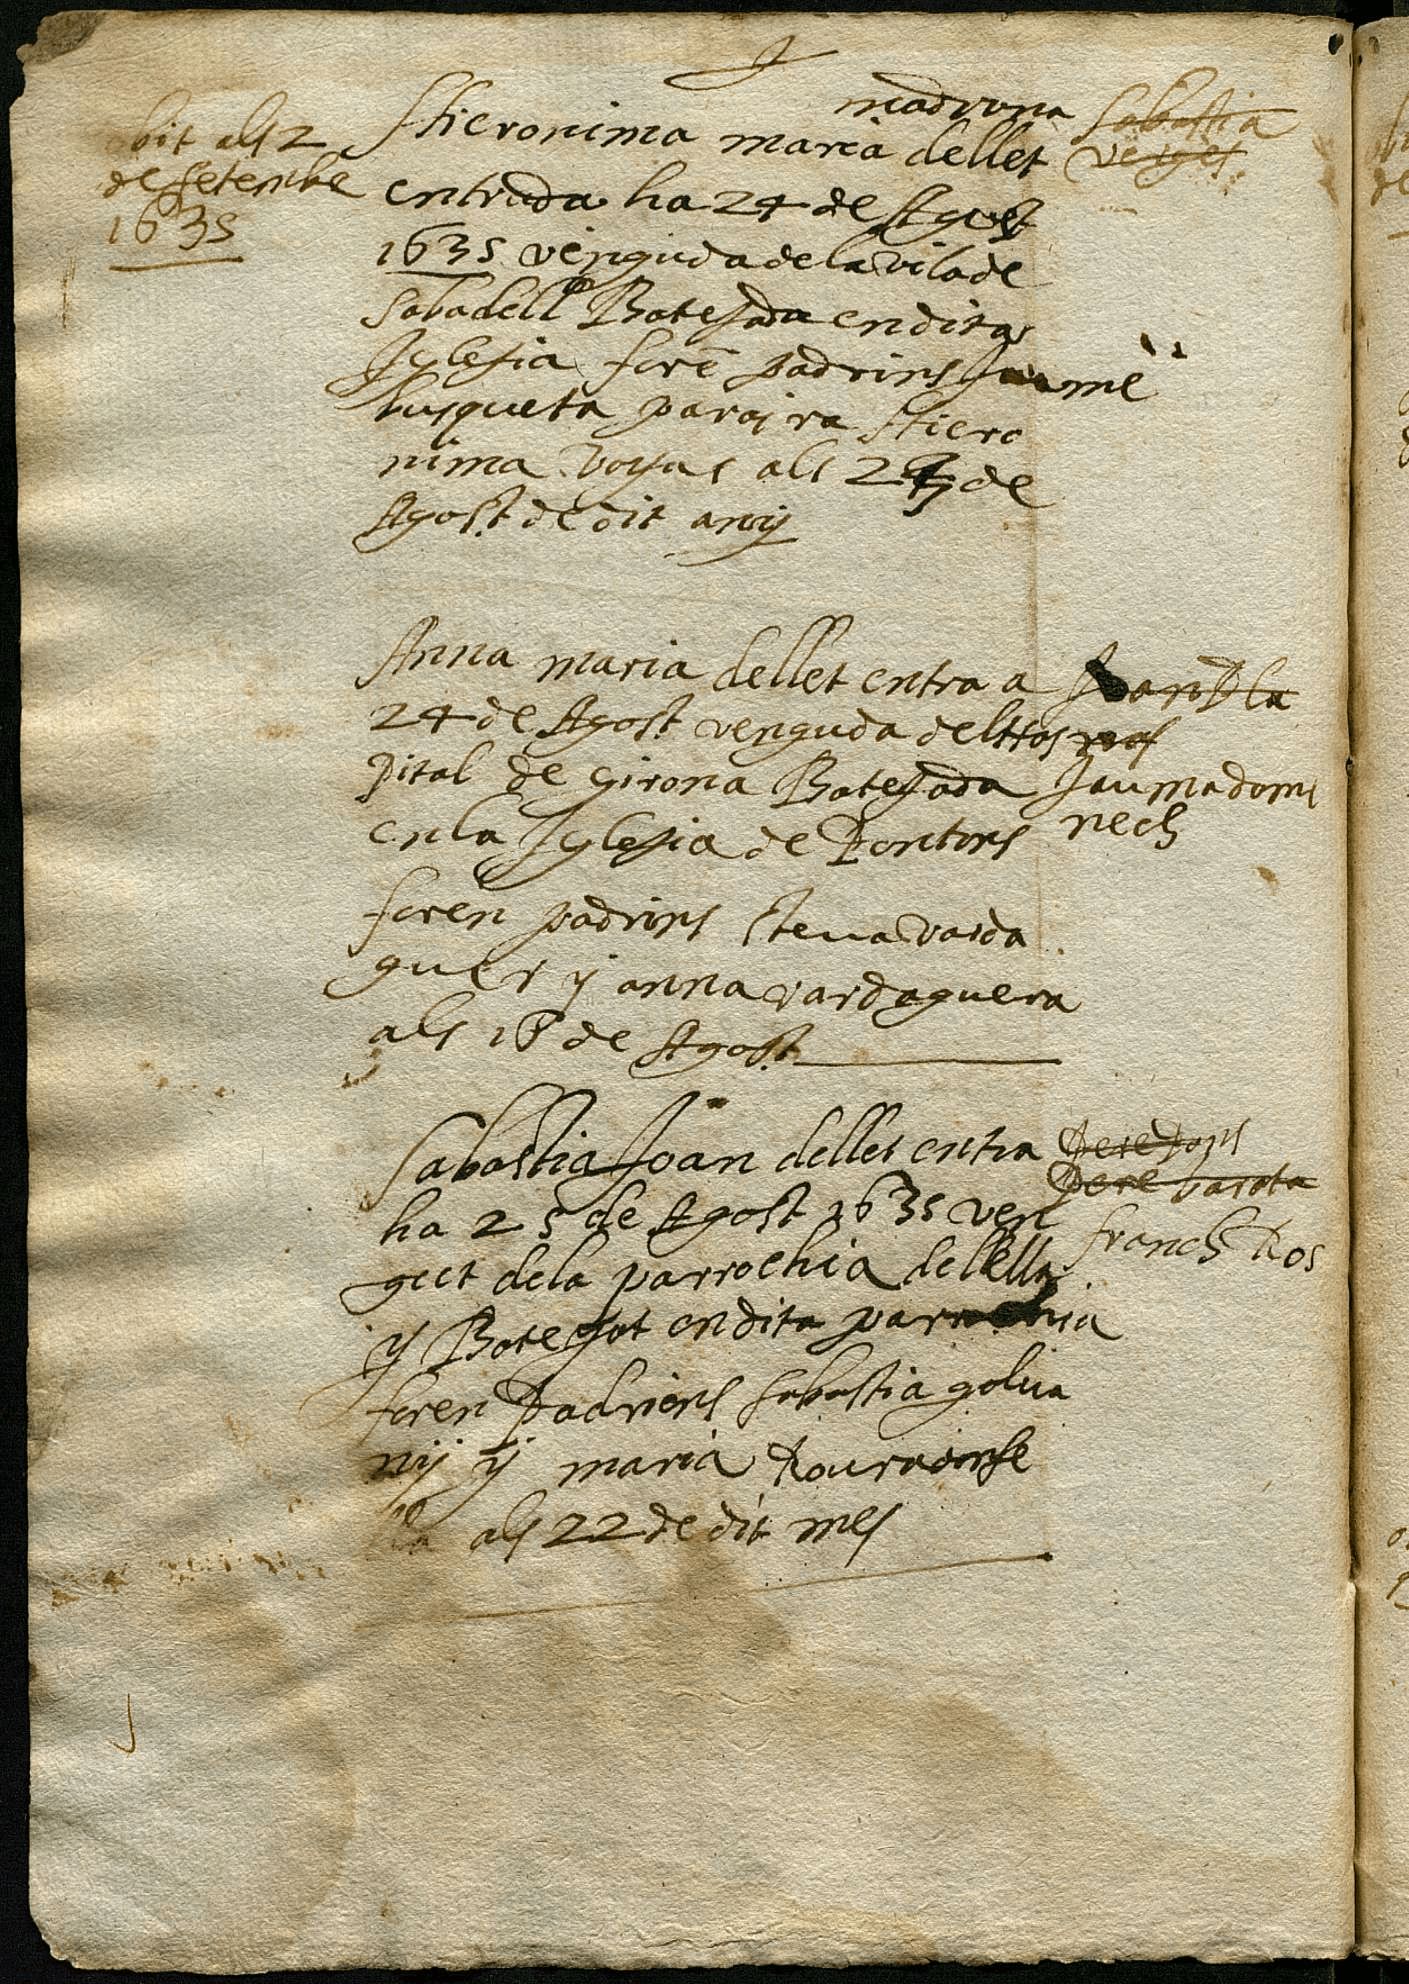 obit als 2
de setembre
1635
madrona
Hieronima maria dellet
entrada ha 24 de Agost
1635 vinguda de la vila de
Sabadell Batejada en dita
Iglesia forē padrins Jaume
busqueta paraira Hiero
nima als 2 de
Agost de dit anÿ
Sabastia
verges
Anna maria dellet entra a
24 de Agost venguda del Hos
pital de Girona Batejada
en la Iglesia de Pontons
foren padrins Steua varda
guer y anna vardaguera
als 18 de Agost
Joan Pla
mas
Jaume domē
nech
Sabastia Joan dellet entra
ha 25 de Agost 1635 ven
gut de la parrochia de lella
y Batejat en dita parrochia
foren Padriens Sabastia galua
nÿ ÿ maria
als 22 de dit mes
Pere Pons
Pere barota
franch Ros